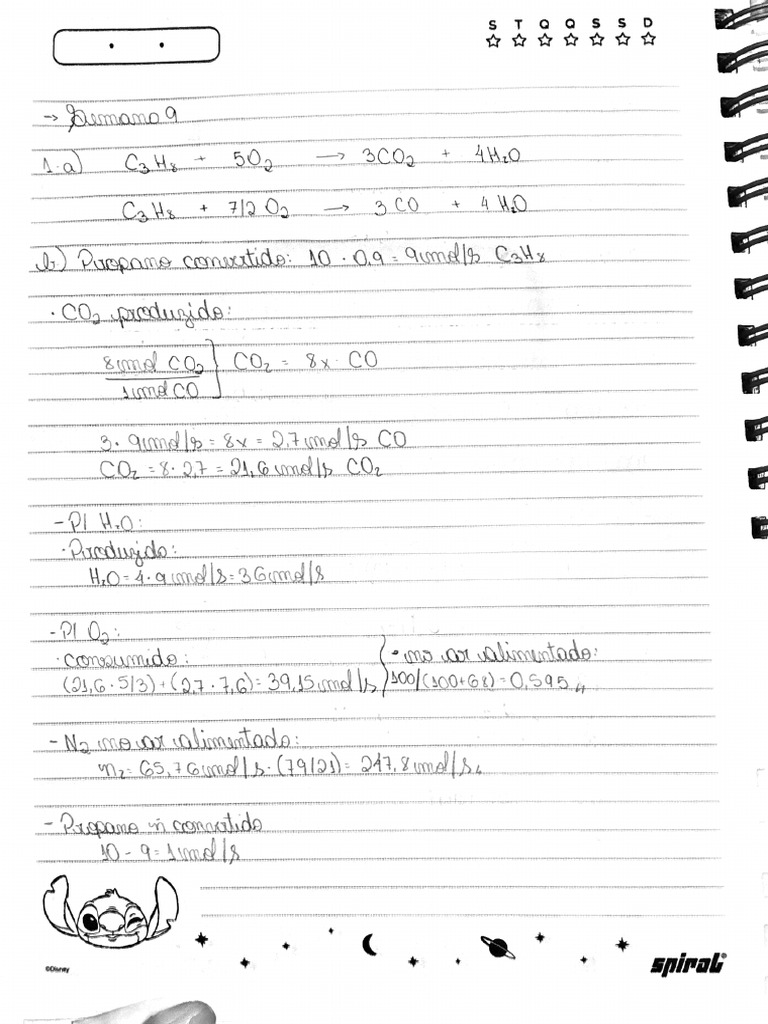 S T Q Q S S D
→ Semana 9
1.a) C3H8 + 5O2 → 3CO2 + 4H2O
C3H8 + 7/2 O2 → 3 CO + 4 H2O
b) Propano convertido: 10 · 0,9 = 9 mol/s C3H8
· CO2 produzido:
8 mol CO2 } CO2 = 8x · CO
1 mol CO
3 · 9 mol/s = 8x = 2,7 mol/s CO
CO2 = 8 · 2,7 = 21,6 mol/s CO2
- P/ H2O:
· Produzido:
H2O = 4 · 9 mol/s = 36 mol/s
- P/ O2:
· consumido:
(21,6 · 5/3) + (2,7 · 7,6) = 39,15 mol/s
• no ar alimentado:
100/(100+68) = 0,595
- N2 no ar alimentado:
n2 = 65,76 mol/s · (79/21) = 247,8 mol/s
- Propano ñ convertido
10 - 9 = 1 mol/s
©Disney
spiral